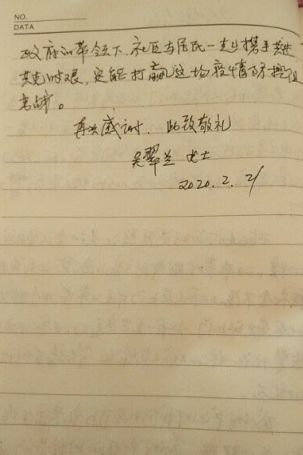 NO.
DATA
政府的带领下,社区与居民一起携手共进
共克时艰,定能打赢这场疫情防控阻
击战。
再次感谢. 此致敬礼
吴翠兰 女士
2020.2.21